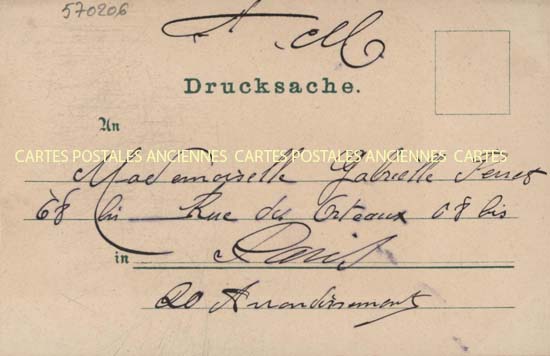 570206
A M
Drucksache.
An
CARTES POSTALES ANCIENNES CARTES POSTALES ANCIENNES CARTES
Mademoiselle Gabrielle
68 bis Rue des Orteaux 68 bis
in Paris
20 Arrondissement